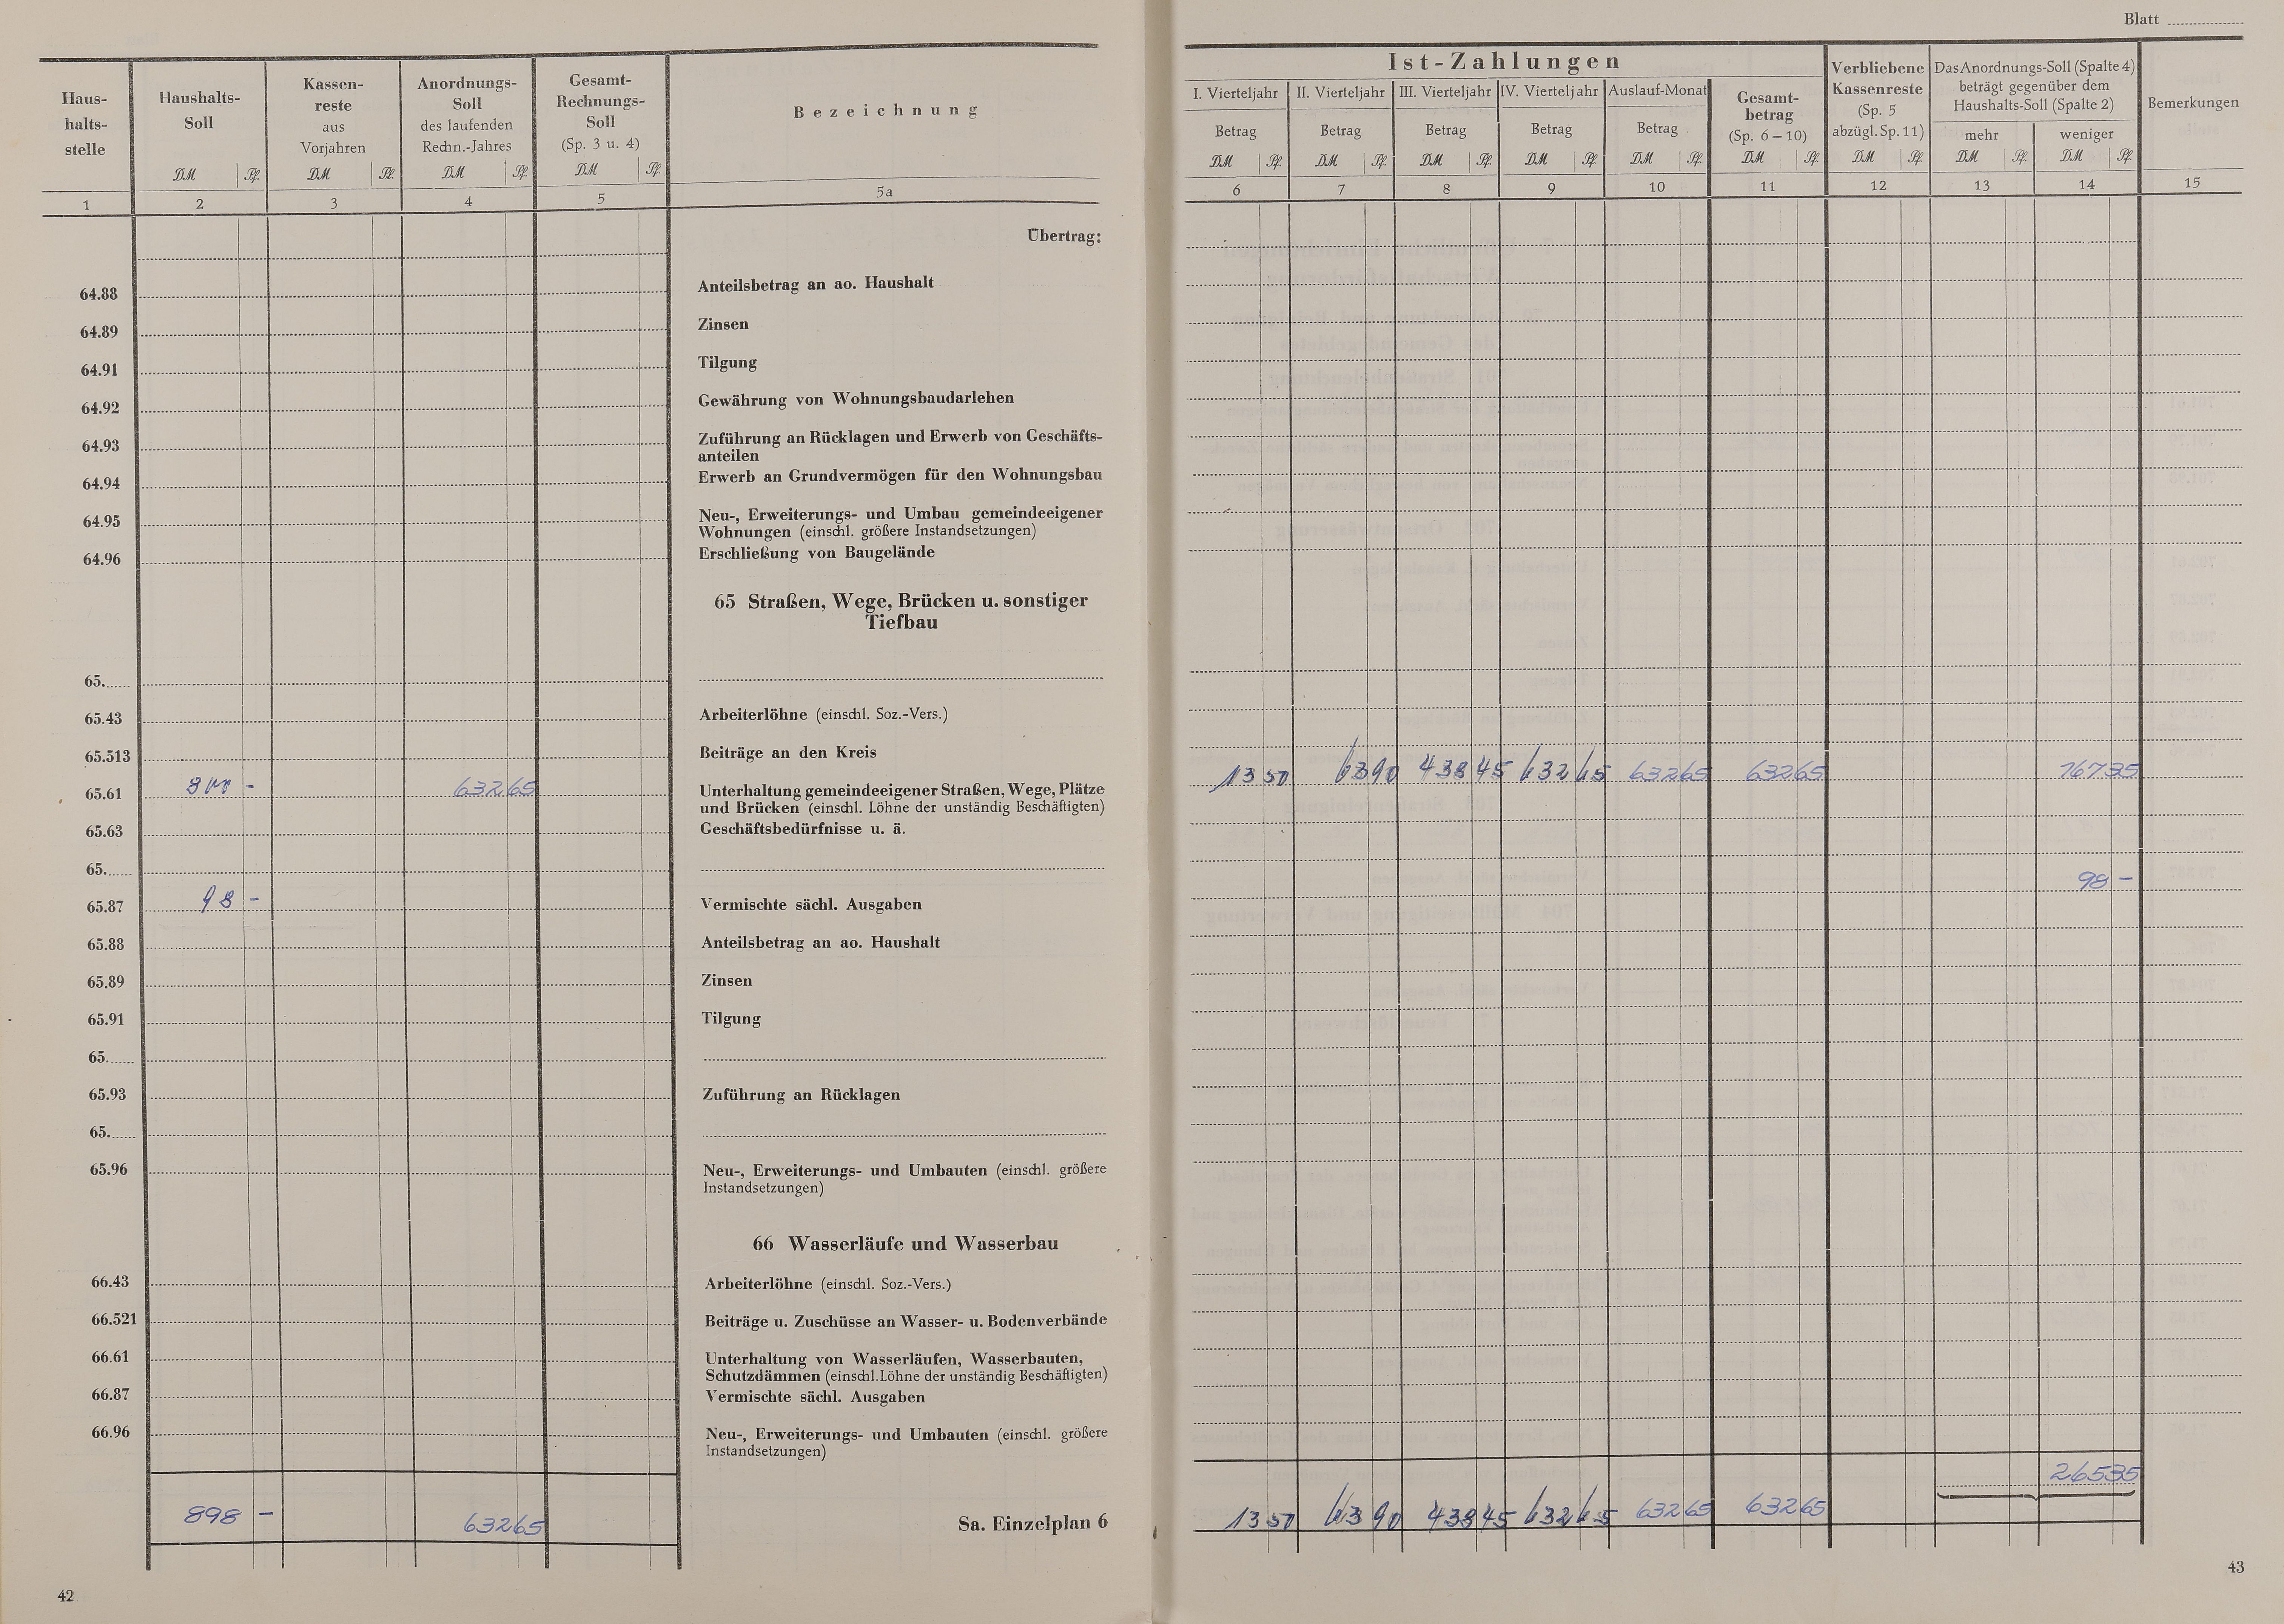 Blatt
Haus-
halts-
stelle
Haushalts-
Soll
DM Pf.
Kassen-
reste
aus
Vorjahren
DM Pf.
Anordnungs-
Soll
des laufenden
Rechn.-Jahres
DM Pf.
Gesamt-
Rechnungs-
Soll
(Sp. 3 u. 4)
DM Pf.
Bezeichnung
1 2 3 4 5 5a
Ist-Zahlungen
I. Vierteljahr II. Vierteljahr III. Vierteljahr IV. Vierteljahr Auslauf-Monat
Betrag Betrag Betrag Betrag Betrag
DM Pf. DM Pf. DM Pf. DM Pf. DM Pf.
Gesamt-
betrag
(Sp. 6–10)
DM Pf.
Verbliebene
Kassenreste
(Sp. 5
abzügl. Sp. 11)
DM Pf.
Das Anordnungs-Soll (Spalte 4)
beträgt gegenüber dem
Haushalts-Soll (Spalte 2)
mehr weniger
DM Pf. DM Pf.
Bemerkungen
6 7 8 9 10 11 12 13 14 15
Übertrag:
64.88 Anteilsbetrag an ao. Haushalt
64.89 Zinsen
64.91 Tilgung
64.92 Gewährung von Wohnungsbaudarlehen
64.93 Zuführung an Rücklagen und Erwerb von Geschäfts-
anteilen
64.94 Erwerb an Grundvermögen für den Wohnungsbau
64.95 Neu-, Erweiterungs- und Umbau gemeindeeigener
Wohnungen (einschl. größere Instandsetzungen)
64.96 Erschließung von Baugelände
65 Straßen, Wege, Brücken u. sonstiger
Tiefbau
65.
65.43 Arbeiterlöhne (einschl. Soz.-Vers.)
65.513 Beiträge an den Kreis
65.61 800 - 632 65 Unterhaltung gemeindeeigener Straßen, Wege, Plätze 13 50 63 90 438 45 632 65 632 65 632 65 167 35
und Brücken (einschl. Löhne der unständig Beschäftigten)
65.63 Geschäftsbedürfnisse u. ä.
65.
65.87 98 - Vermischte sächl. Ausgaben 98 -
65.88 Anteilsbetrag an ao. Haushalt
65.89 Zinsen
65.91 Tilgung
65.
65.93 Zuführung an Rücklagen
65.
65.96 Neu-, Erweiterungs- und Umbauten (einschl. größere
Instandsetzungen)
66 Wasserläufe und Wasserbau
66.43 Arbeiterlöhne (einschl. Soz.-Vers.)
66.521 Beiträge u. Zuschüsse an Wasser- u. Bodenverbände
66.61 Unterhaltung von Wasserläufen, Wasserbauten,
Schutzdämmen (einschl. Löhne der unständig Beschäftigten)
66.87 Vermischte sächl. Ausgaben
66.96 Neu-, Erweiterungs- und Umbauten (einschl. größere
Instandsetzungen)
265 35
898 - 632 65 Sa. Einzelplan 6 13 50 63 90 438 45 632 65 632 65 632 65
42
43